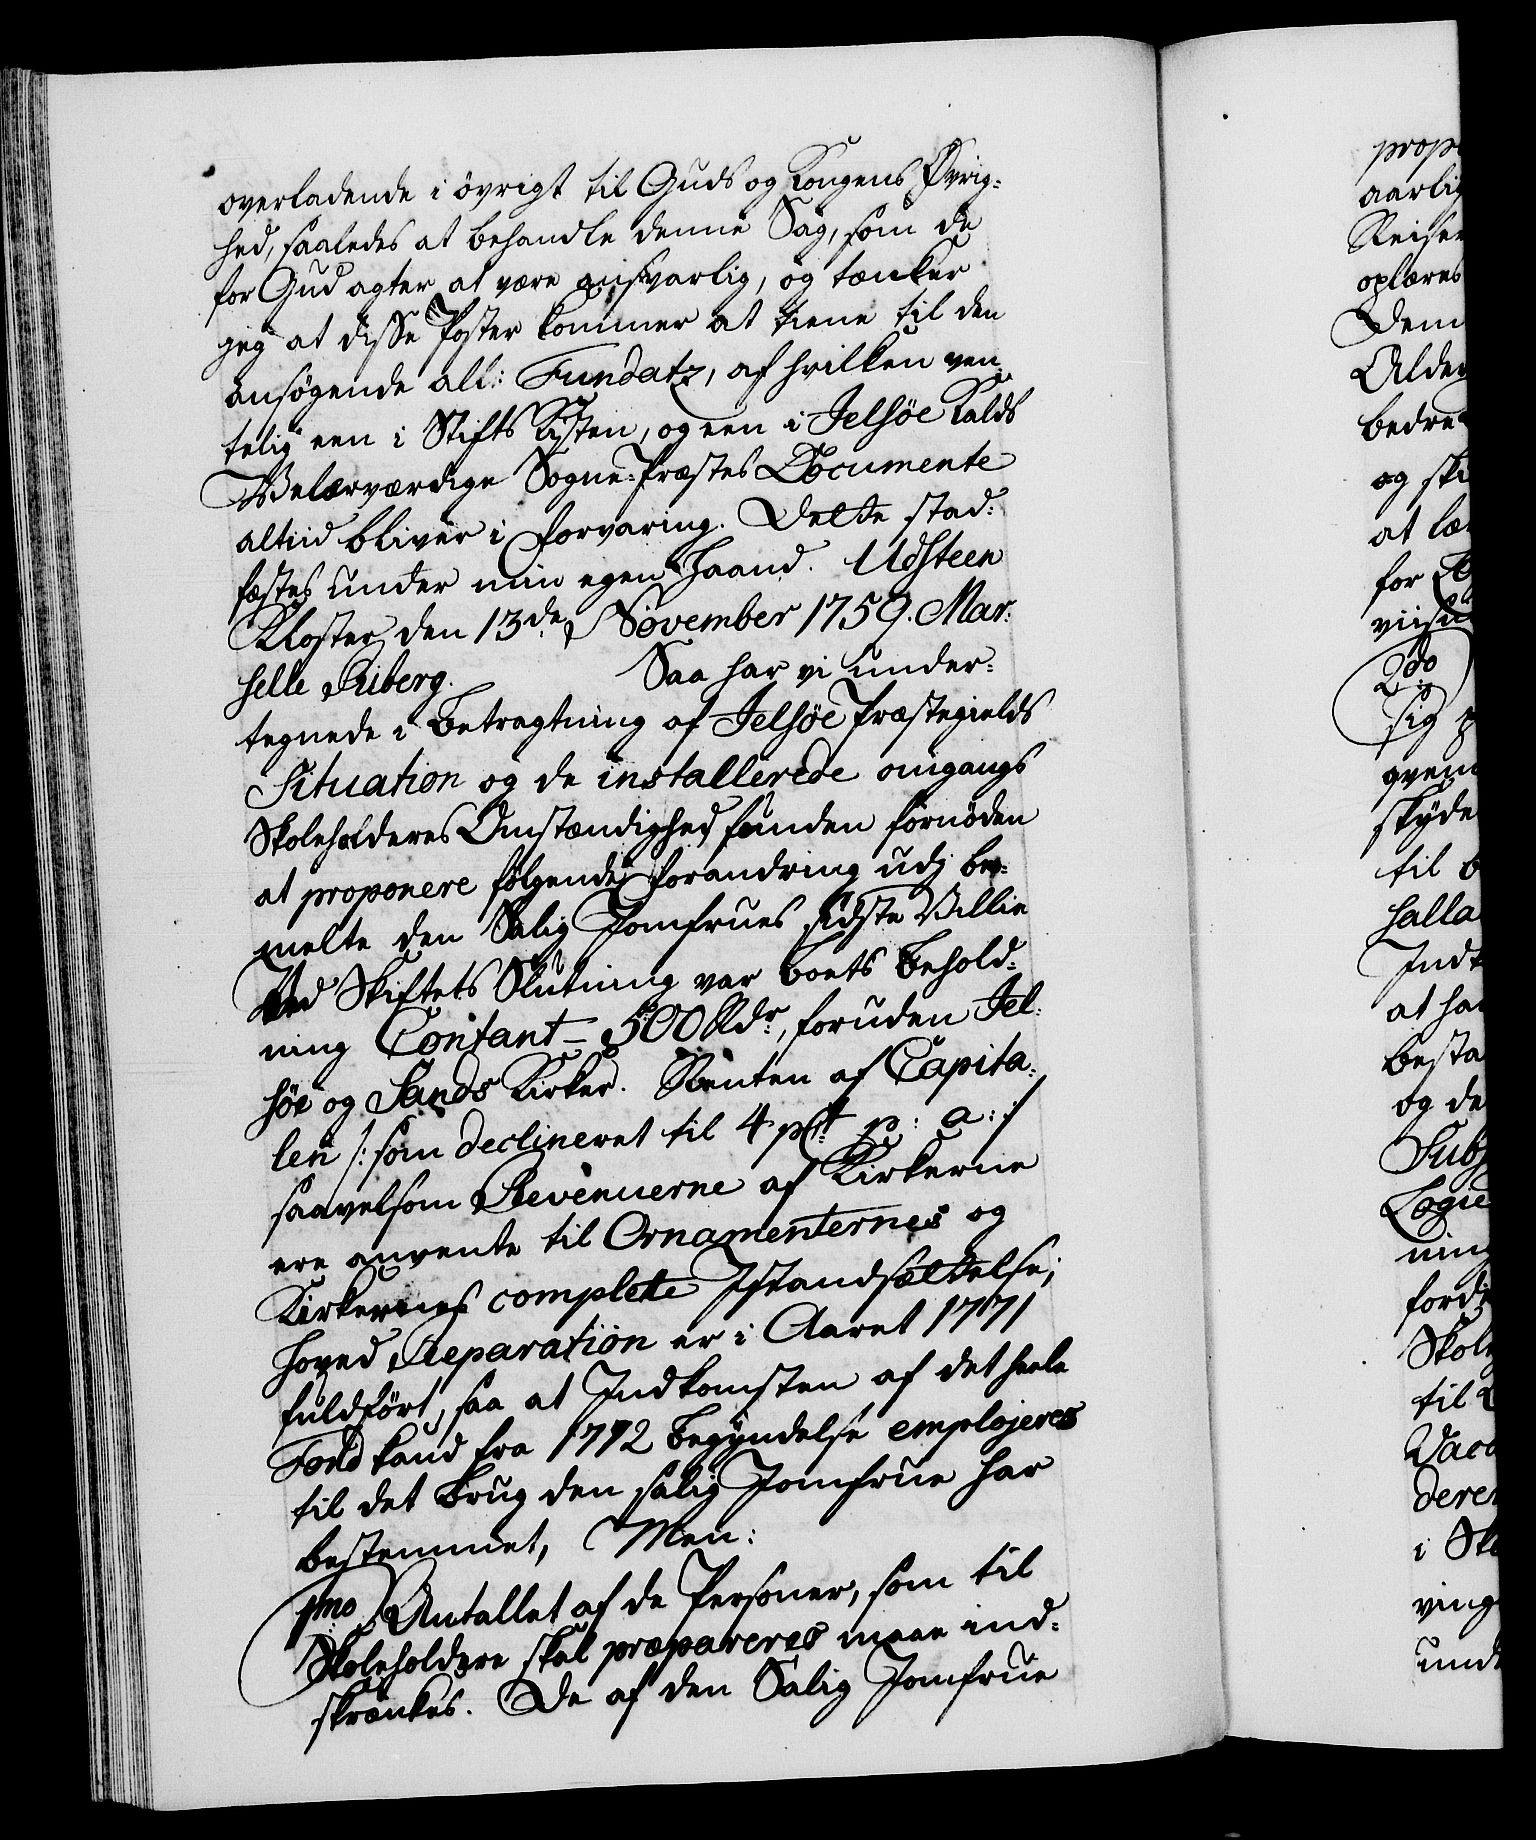 overladende i övrigt til Guds og Kongens Øvrig:
hed, saaledes at behandle denne Sag, som de
for Gud agter at være ansvarlig, og tænker
jeg at disse Poster kommer at tiene til den
ansøgende all: Fundatz, af hvilken ven:
telig een i Stifts Kisten, og een i Jelsöe Kalds
Velærværdige Sogne-Præstes Documente
altiid bliver i forvaring. Dette stad:
fæstes under min egen Haand. Udsteen
Kloster den 13de November 1759. Mar:
selle Riberg. Saa har vi under:
tegnede i Betragtning af Jelsöe Præstegields
Situation og de installerede omgangs
Skoleholderes Omstændighed funden fornöden
at proponere fölgende forandring udj be:
melte den Salig Jomfrues sidste Villie
Ved Skiftets Slutning var boets Behold:
ning Contant – 500 Rdr, foruden Jel:
söe og Sands Kirker. Renten af Capita:
len /: som declineret til 4 pCt p: a: :/
saavelsom Revenuerne af Kirkerne
ere anvente til Ornamenternes og
Kirkernes complette Istandsættelse;
Hoved Reparation er i Aaret 1771
fuldfört, saa at Indkomsten af det heele
Fond kand fra 1772 Begyndelse employeres
til det brug den salig Jomfrue har
bestemmet, Men:
1mo Antallet af de Personer, som til
Skoleholdere skal præpareres maae ind:
skrænkes. De af den Salig Jomfrue
prop
aarlig
Reiser
oplæres
Dem
Alder
bedre
og ski
at læ
for
viisn
2do
sig
qven
skyde
til
halla
Indt
at ha
besta
og de
Subs
Logie
ning
fordi
Skol
til
Vaca
derer
i Sko
ving
unde